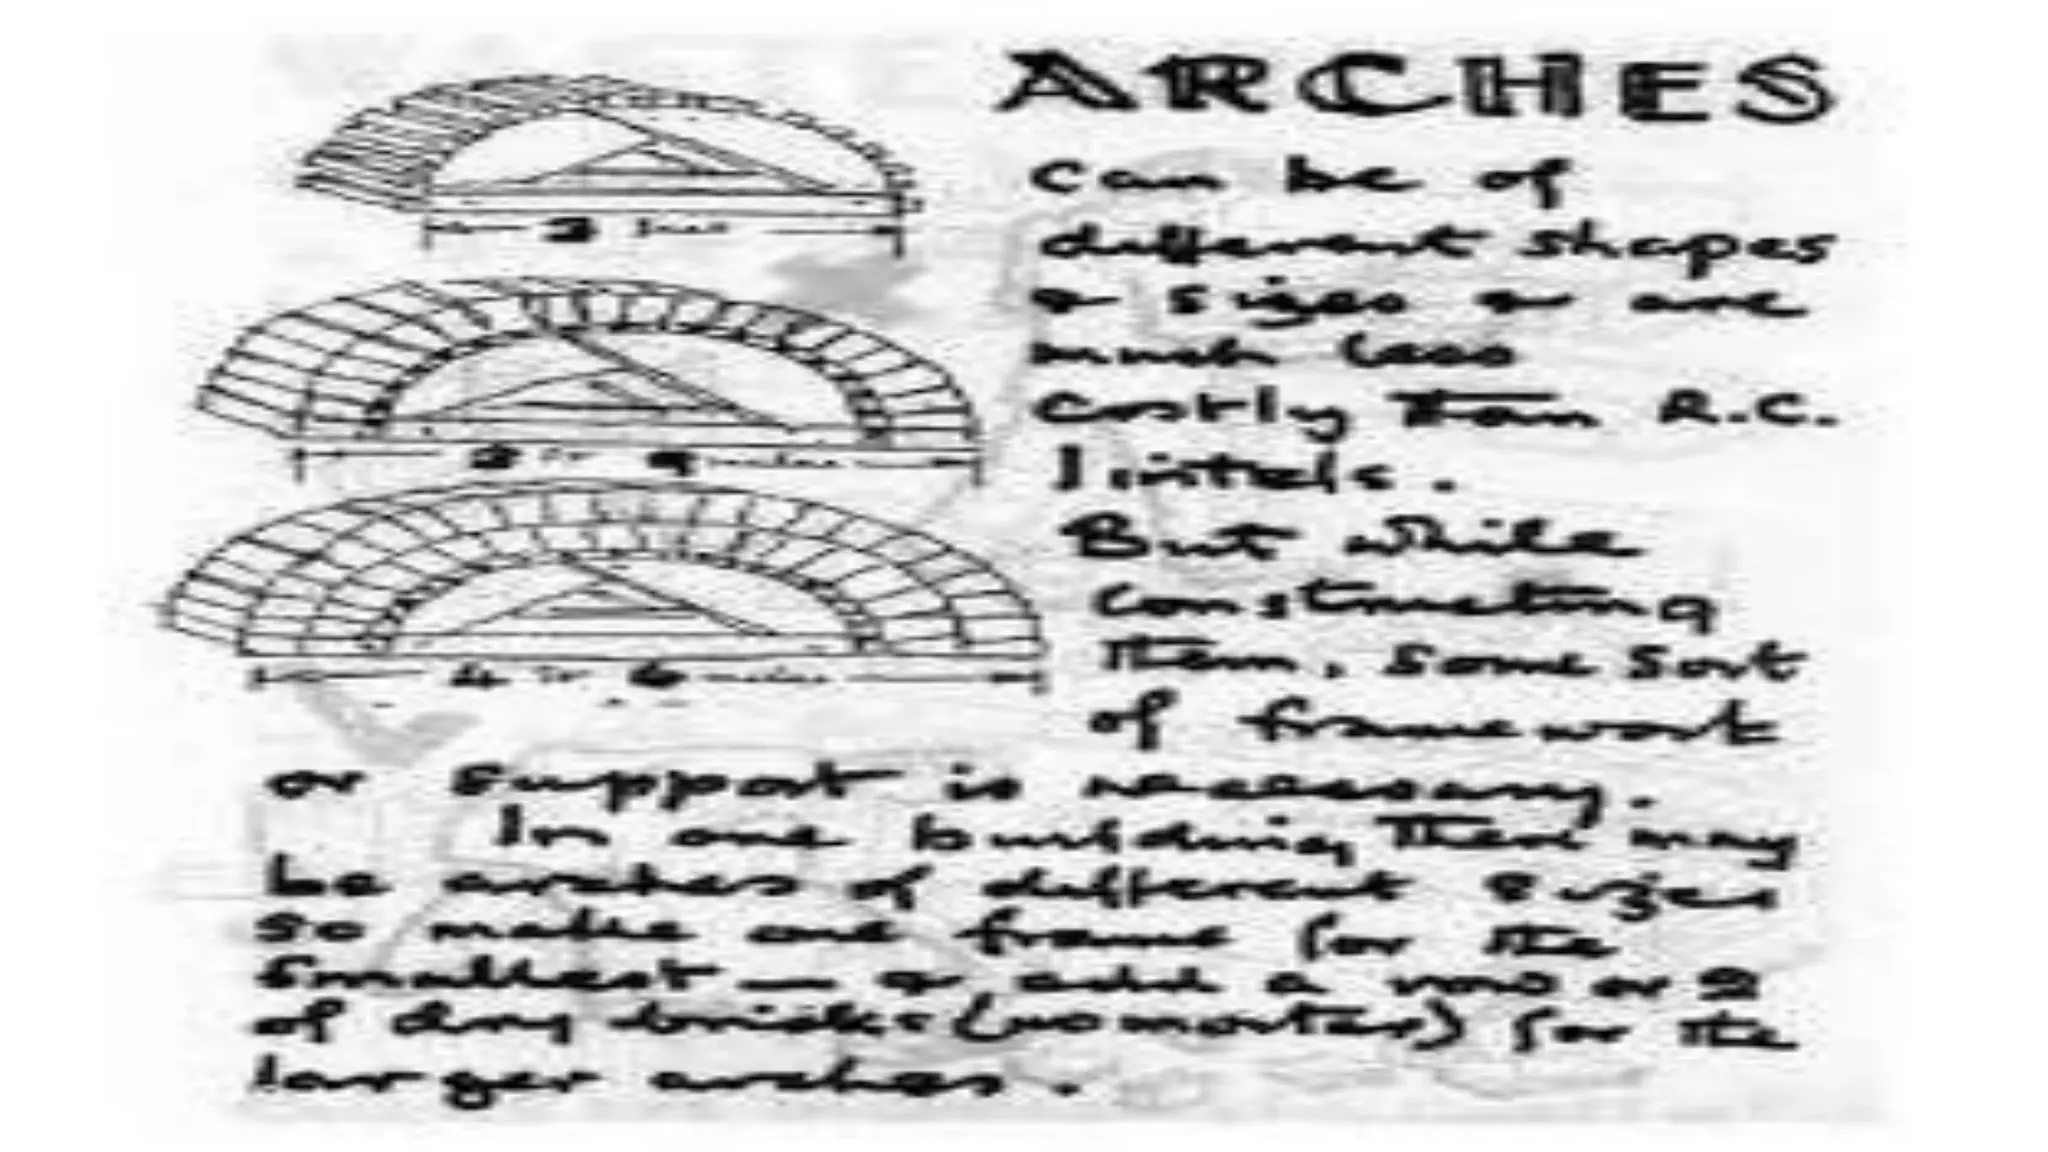 ARCHES
can be of
different shapes
& sizes & are
much less
costly than R.C.
lintels.
But while
constructing
them, some sort
of framework
or support is necessary.
In one building there may
be arches of different sizes
so make one frame for the
smallest — & add a row or 2
of dry bricks (no mortar) for the
larger arches.
4 to 6 metres